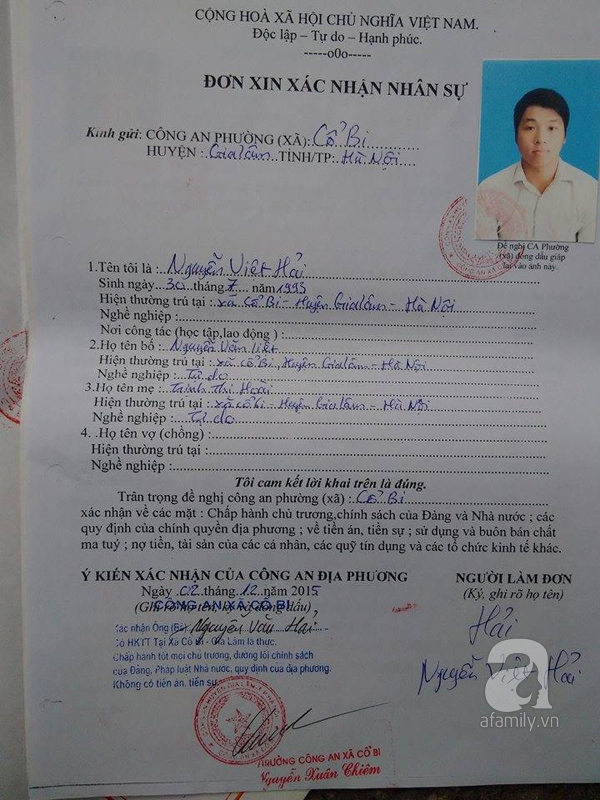 CỘNG HOÀ XÃ HỘI CHỦ NGHĨA VIỆT NAM.
Độc lập – Tự do – Hạnh phúc.
-----o0o-----
ĐƠN XIN XÁC NHẬN NHÂN SỰ
Kính gửi: CÔNG AN PHƯỜNG (XÃ): Cổ Bi
HUYỆN : Gia lâm TỈNH/TP: Hà Nội
Đề nghị CA Phường
(xã) đóng dấu giáp
lai vào ảnh này.
1.Tên tôi là : Nguyễn Việt Hải
Sinh ngày 30 tháng 7 năm 1993
Hiện thường trú tại : xã Cổ Bi - Huyện Gia lâm - Hà Nội
Nghề nghiệp :
Nơi công tác (học tập,lao động ) :
2.Họ tên bố : Nguyễn Văn
Hiện thường trú tại : xã cổ Bi, Huyện Gia lâm - Hà Nội
Nghề nghiệp : Tự do
3.Họ tên mẹ : Trịnh Thị Hoài
Hiện thường trú tại : xã cổ bi - Huyện Gia lâm - Hà Nội
Nghề nghiệp : Tự do
4. .Họ tên vợ (chồng) :
Hiện thường trú tại :
Nghề nghiệp :
Tôi cam kết lời khai trên là đúng.
Trân trọng đề nghị công an phường (xã) : Cổ Bi
xác nhận về các mặt : Chấp hành chủ trương,chính sách của Đảng và Nhà nước ; các
quy định của chính quyền địa phương ; về tiền án, tiền sự ; sử dụng và buôn bán chất
ma tuý ; nợ tiền, tài sản của các cá nhân, các quỹ tín dụng và các tổ chức kinh tế khác.
Ý KIẾN XÁC NHẬN CỦA CÔNG AN ĐỊA PHƯƠNG
Ngày 02 tháng 12 năm 2015
(Ghi rõ họ tên, ký và đóng dấu)
CÔNG AN XÃ CỔ BI
Xác nhận Ông (Bà) Nguyễn Văn Hải
Có HKTT Tại Xã Cổ Bi - Gia Lâm là thực.
Chấp hành tốt mọi chủ trương, đường lối chính sách
của Đảng, Pháp luật Nhà nước, quy định của địa phương.
Không có tiền án, tiền sự
TRƯỞNG CÔNG AN XÃ CỔ BI
Nguyễn Xuân Chiêm
NGƯỜI LÀM ĐƠN
(Ký, ghi rõ họ tên)
Hải
Nguyễn Việt Hải
a
afamily.vn